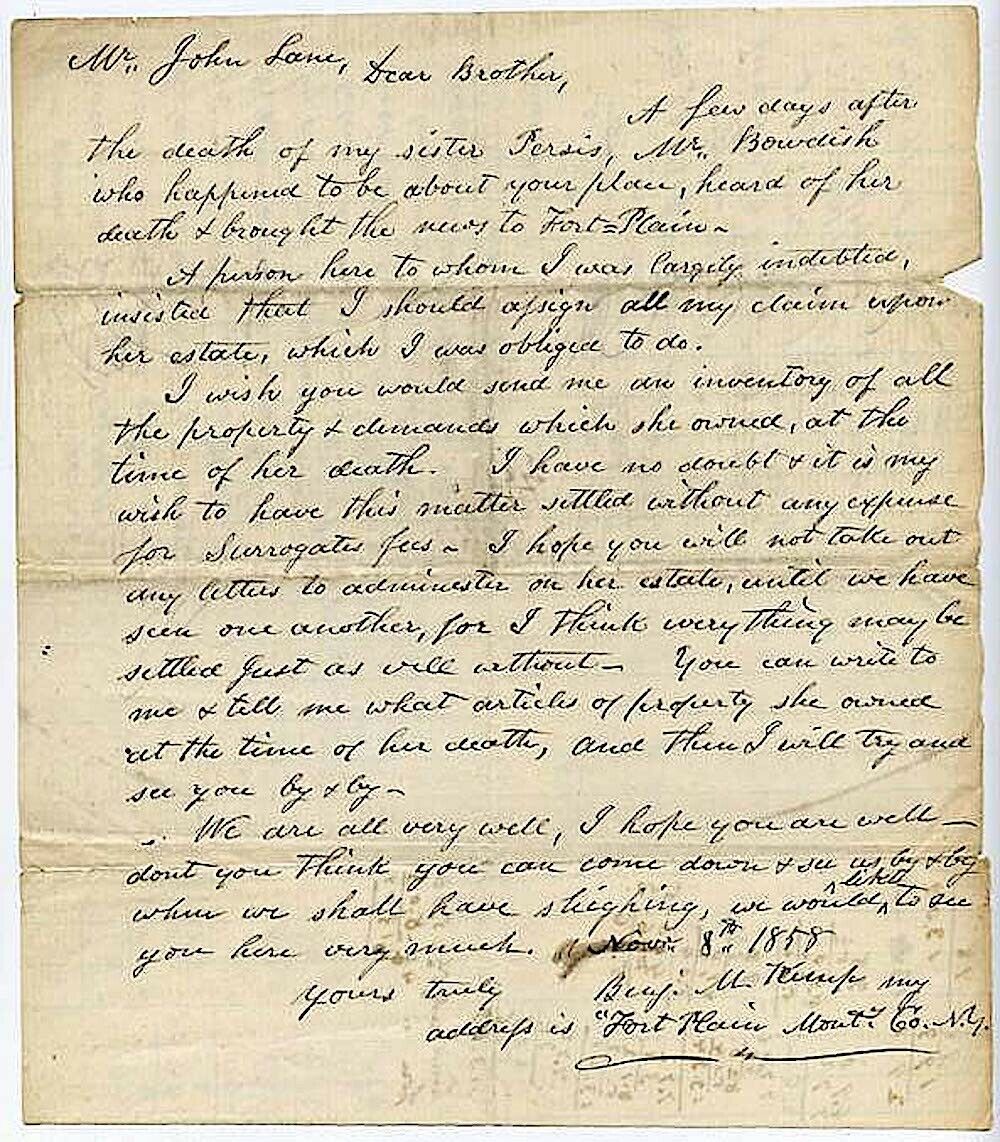 Mr. John Lane, Dear Brother,
A few days after
the death of my sister Persis, Mr. Bowdish
who happened to be about your place, heard of her
death & brought the news to Fort=Plain–
A person here to whom I was largely indebted,
insisted that I should assign all my claim upon
her estate, which I was obliged to do.
I wish you would send me an inventory of all
the property & demands which she owned, at the
time of her death. I have no doubt & it is my
wish to have this matter settled without any expense
for Surrogates fees– I hope you will not take out
any letters to administer on her estate, until we have
seen one another, for I think everything may be
settled just as well without– You can write to
me & tell me what articles of property she owned
at the time of her death, and then I will try and
see you by & by–
We are all very well, I hope you are well–
dont you think you can come down & see us by & by
when we shall have sleighing, we would like to see
you here very much. Nov. 8th 1858
Yours truly Benj. M. Kemp my
address is "Fort Plain Mont.y Co. N.Y.